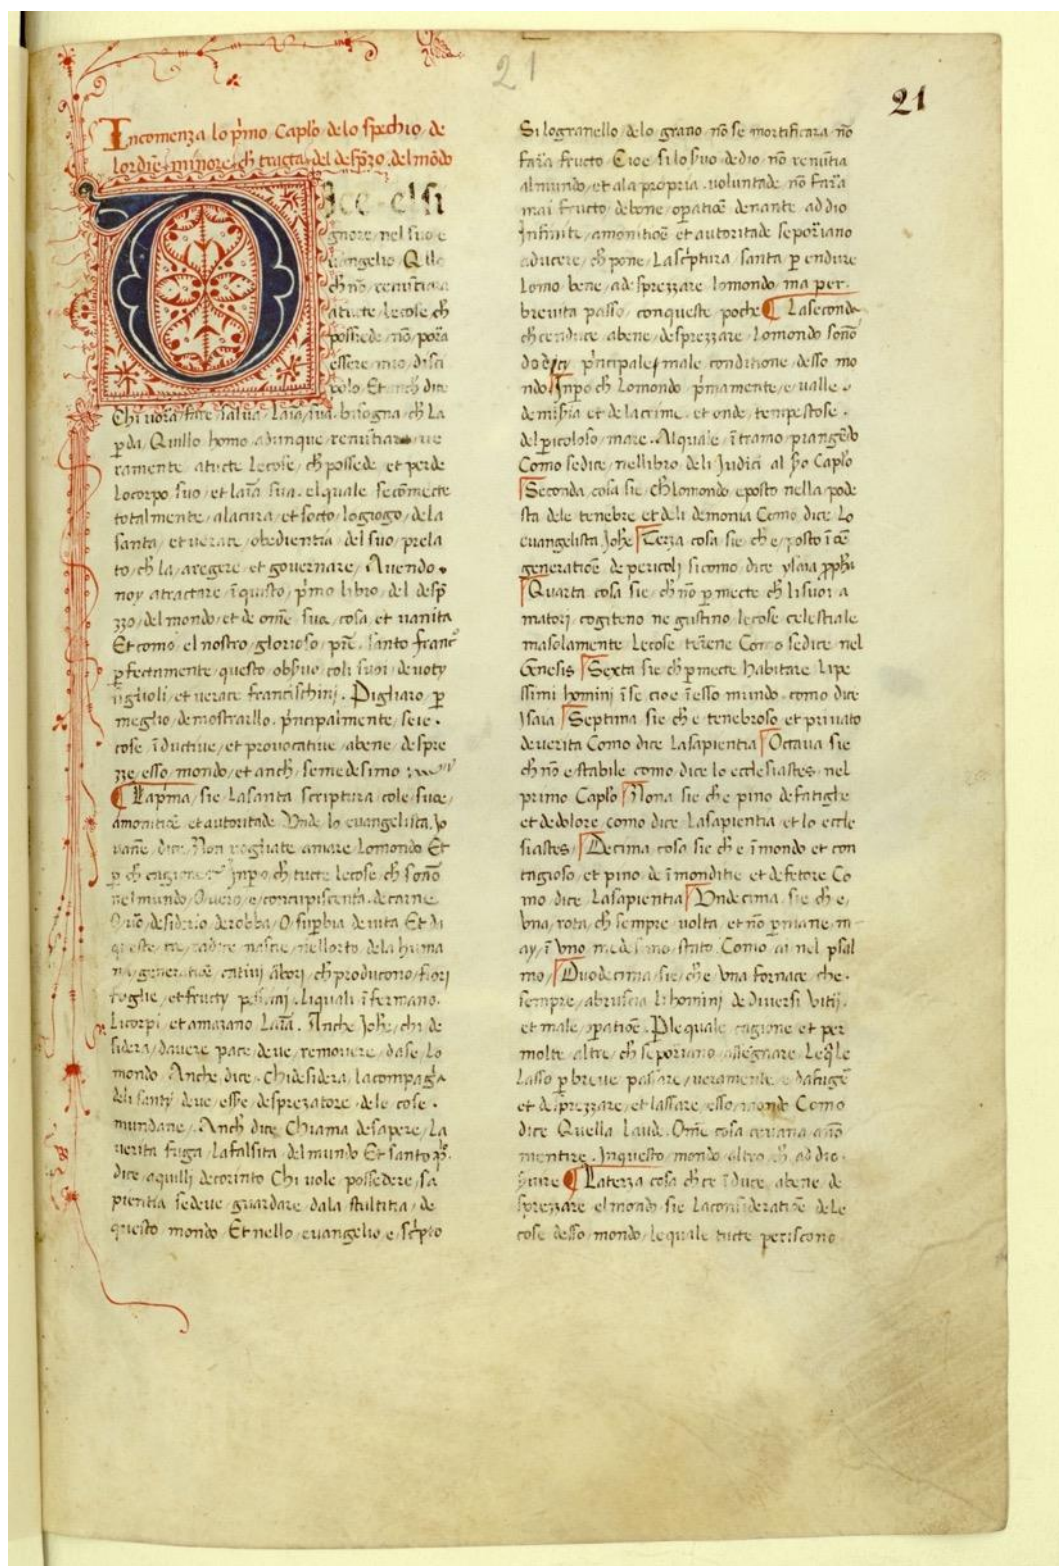 21
21
Incomenza lo p̄mo Caplo delo spechio de
lordīe minore ch̄ tracta del desp̄zo del mōdo
Dice el si
gnore nel suo e
uangelio Q llo
ch̄ nō renuntia a
atucte lecose ch̄
possede nō porīa
essere mio disci
polo Et anch̄ dice
Chi vora fare salua laīa sua bisogna ch̄ la
ꝑda. Quillo homo adunque renūtiara ue
ramente atucte lecose ch̄ possede et perde
locorpo suo et laīa sua. elquale secōmecte
totalmente alacura et socto logiogo dela
santa et uerace obedientia del suo prela
to ch̄ la aregere et governare Avendo
noy atractare ī quisto p̄mo libro del desp̄
zzo del mondo et de om̄e sua cosa et uanita
Et como el nostro glorioso pr̄e santo franc̄
ꝑfectamente questo obs̄uo coli suoi devoty
figlioli et verace francischini. Pigliaro ꝑ
meglio demostrarllo. p̄ncipalmente seie
cose īductive et provocative abene despre
zze esso mondo et anch̄ semedesimo
Lap̄ma sie Lasanta scriptura cole suce
amonitiōe et autoritade Vnde lo evangelista Jo
vanē dice Non vogliate amare lomondo Et
ꝑ ch̄ cagione Inp̄o ch̄ tucte lecose ch̄ sonō
nel mundo O uero e concupiscentia decarne
O uō desiderio derobba O suꝑbia deuita Et di
queste tre radice nasce nellorto dela huma
na generatiōe cativi ārbori ch̄ producono fiori
foglie et fructy pessimi. liquali īfermano
Li corpi et amazano Laīa. Anche Joh̄e chi de
sidera davere pace deve removere dase lo
mondo Anche dice Chi desidera lacompagīa
deli santy deve esse desprezatore dele cose
mundane. Anch̄ dice Chiama desapere La
uerita fuga lafalsita del mundo Et santo p̄
dice aquilli decorinto Chi uole possedere sa
pientia sedeve guardare dala stultitia de
questo mondo Et nello evangelio e sc̄pto
Si logranello delo grano nō se mortificara nō
fara fructo Cioe si lo s̄uo dedio nō renūtia
almundo et ala propria voluntade nō fara
mai fructo debone oꝑatiōe denante addio
Infinite amonitiōe et autoritade seporiano
aducere ch̄ pone Lasc̄ptura santa ꝑ endure
lomo bene adesprezzare lomondo ma per
brevita passo conqueste poche Laseconda
ch̄ cenduce abene desprezzare lomondo sonō
dodicy p̄ncipale male conditione desso mo
ndo Inp̄o ch̄ lomondo p̄mamente e valle
demis̄ia et delacrime et onde tempestose
delꝑicoloso mare. Alquale ītramo piangēdo
Como sedice nellibro deli Judici al p̄o Caplo
Seconda cosa sie ch̄ lomondo eposto nella pode
sta dele tenebre et deli demonia Como dice lo
evangelista Joh̄e Terza cosa sie ch̄ e posto ī cē
generatiōe de pericoli sicomo dice ysaia p̄ph̄
Quarta cosa sie ch̄ nō ꝑmecte ch̄ lisuoi a
matori cogiteno ne gustino lecose celestiale
masolamente lecose terrene Como sedice nel
Genesis Sexta sie ch̄ ꝑmecte habitare lipe
ssimi homini ī se cioe ī esso mundo como dice
Isaia Septima sie ch̄ e tenebroso et privato
deverita Como dice lasapientia Octava sie
ch̄ nō e stabile como dice lo ecclesiastes nel
primo Caplo Nona sie che pino defatighe
et dedolore como dice lasapientia et lo eccle
siastes Decima cosa sie ch̄ e īmondo et con
tagioso et pino de īmonditie et defetore Co
mo dice lasapientia Undecima sie ch̄ e
una rota ch̄ sempre volta et nō ꝑmane m
ay ī uno medesimo stato Como ai nel psal
mo Duodecima sie ch̄ e una fornace che
sempre abruscia li homini de diversi vitij
et male oꝑatiōe. Ple quale cagione et per
molte altre ch̄ seporiano assegnare Leq̄le
lasso ꝑ breve passare veramente e dafugē
et desprezzare et lassare esso mondo Como
dice Quella laude. Om̄e cosa terrana anō
mentire. Inquesto mondo altro ch̄ addio
s̄vire Laterza cosa ch̄ce īduce abene de
sprezzare elmondo sie laconsideratiōe dele
cose desso mondo lequale tucte periscono